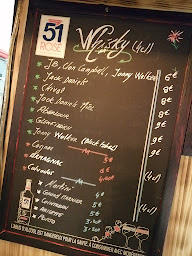 51
ROSÉ
Whisky (4cl)
JB, Clan Campbell, Jonny Walker 5€
Jack Daniels 6€
Chivas 8€
Jack Daniels Miel 8€
Aberlour 8€
Glenfiddich 9€
Jonny Walker (Black Label) 9€
Cognac 5€
Armagnac 5€
Calvados 5€ (4cl)
Martini 4€
Grand Marnier 5€
Cointreau 5€
3.50€ (4cl)
Porto 3.50€
L'ABUS D'ALCOOL EST DANGEREUX POUR LA SANTÉ. À CONSOMMER AVEC MODÉRATION